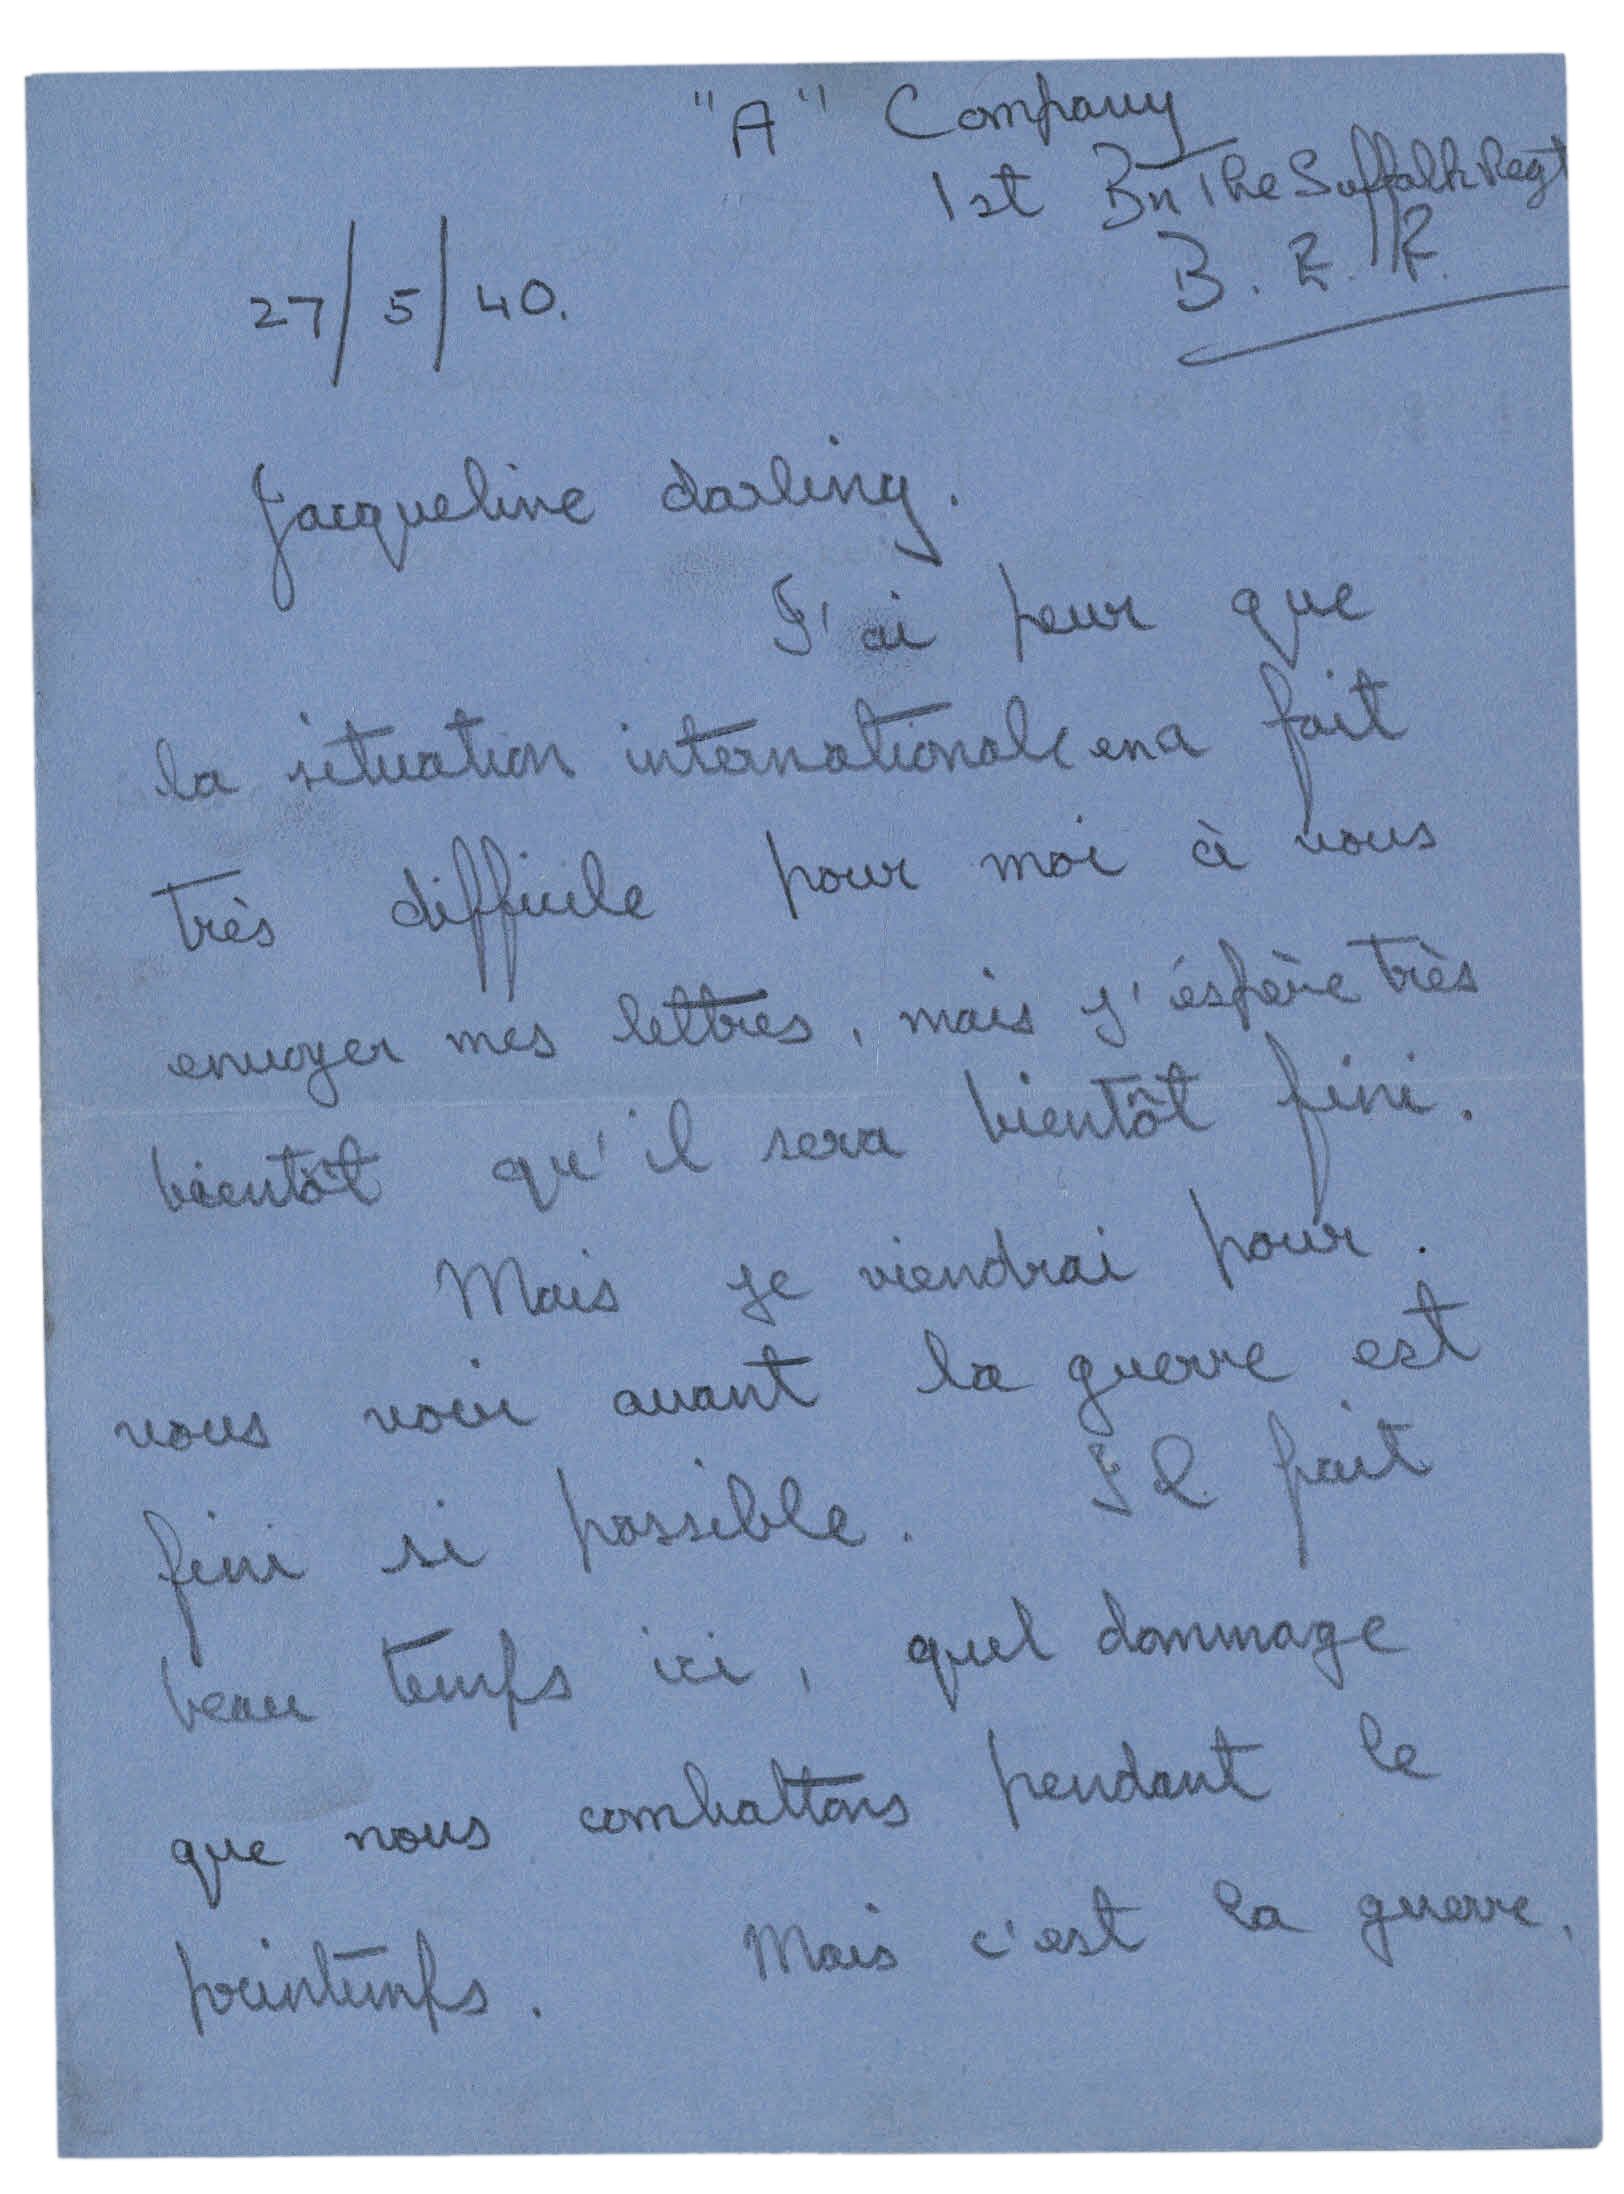 "A" Company
1st Bn The Suffolk Regt
B. E. F.
27/5/40.
Jacqueline darling.
J'ai peur que
la situation internationale en a fait
très difficile pour moi à vous
envoyer mes lettres, mais j'éspère très
bientôt qu'il sera bientôt fini.
Mais je viendrai pour.
vous voir avant la guerre est
fini si possible. Il fait
beau temps ici, quel dommage
que nous combattons pendant le
printemps. Mais c'est la guerre.